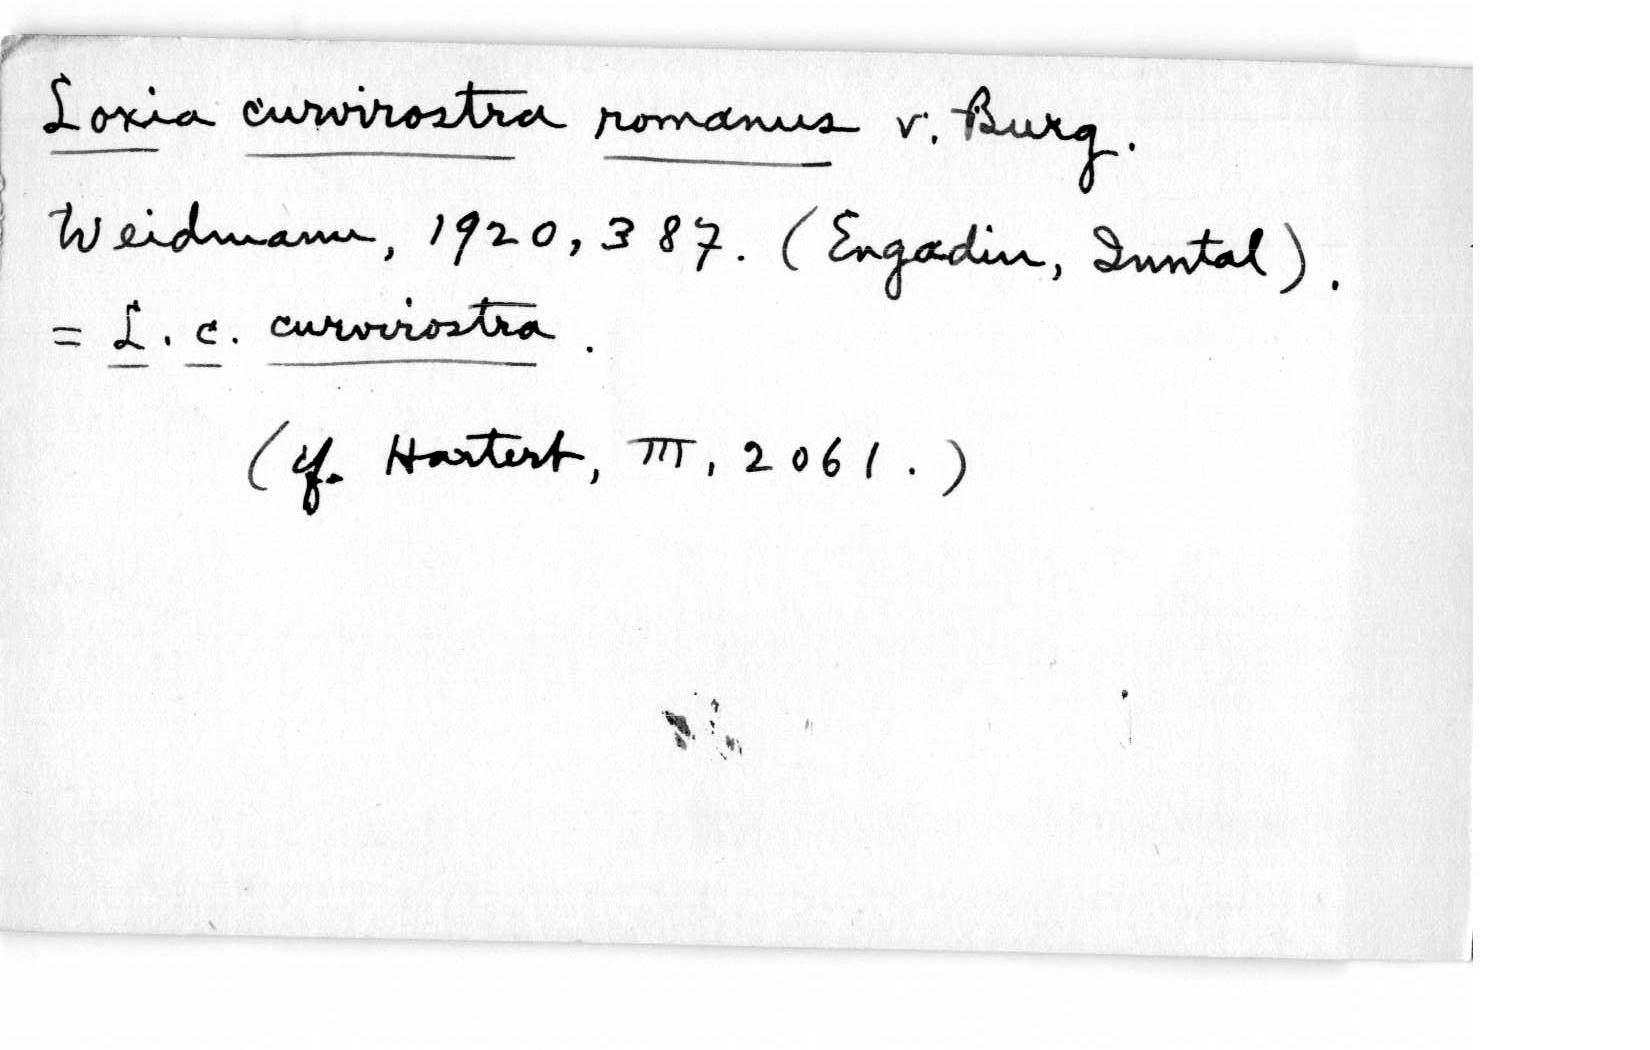 Loxia curvirostra romanus v. Burg.
Weidmann, 1920, 387. (Engadin, Inntal).
= L. c. curvirostra.
(cf. Hartert, III, 2061.)